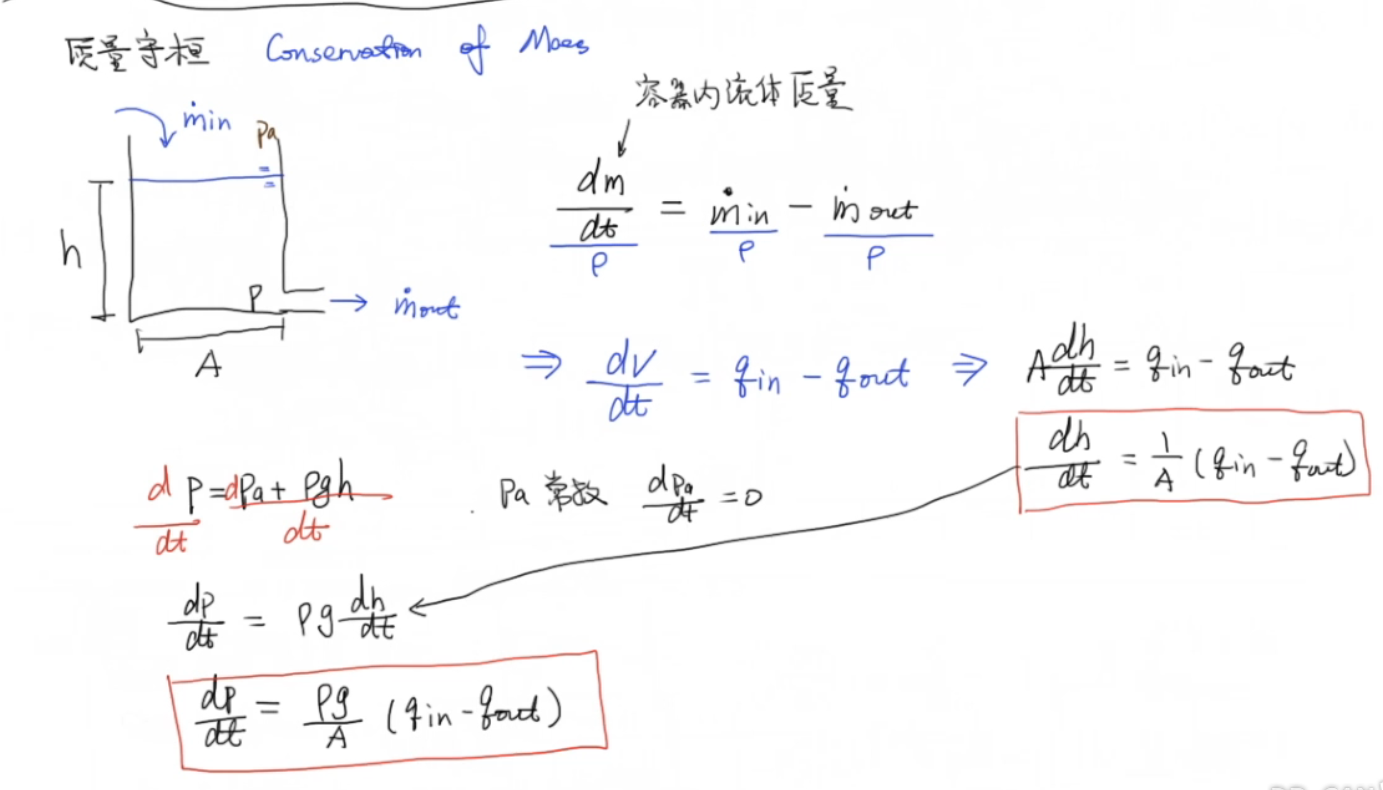 质量守恒 Conservation of Mass
容器内流体质量
ṁin
Pa
dm/dt / ρ = ṁin / ρ − ṁout / ρ
h
P
ṁout
A
⇒ dV/dt = qin − qout ⇒ A dh/dt = qin − qout
dh/dt = 1/A (qin − qout)
d/dt P = dPa + ρgh / dt
Pa 常数 dPa/dt = 0
dP/dt = ρg dh/dt
dP/dt = ρg/A (qin − qout)